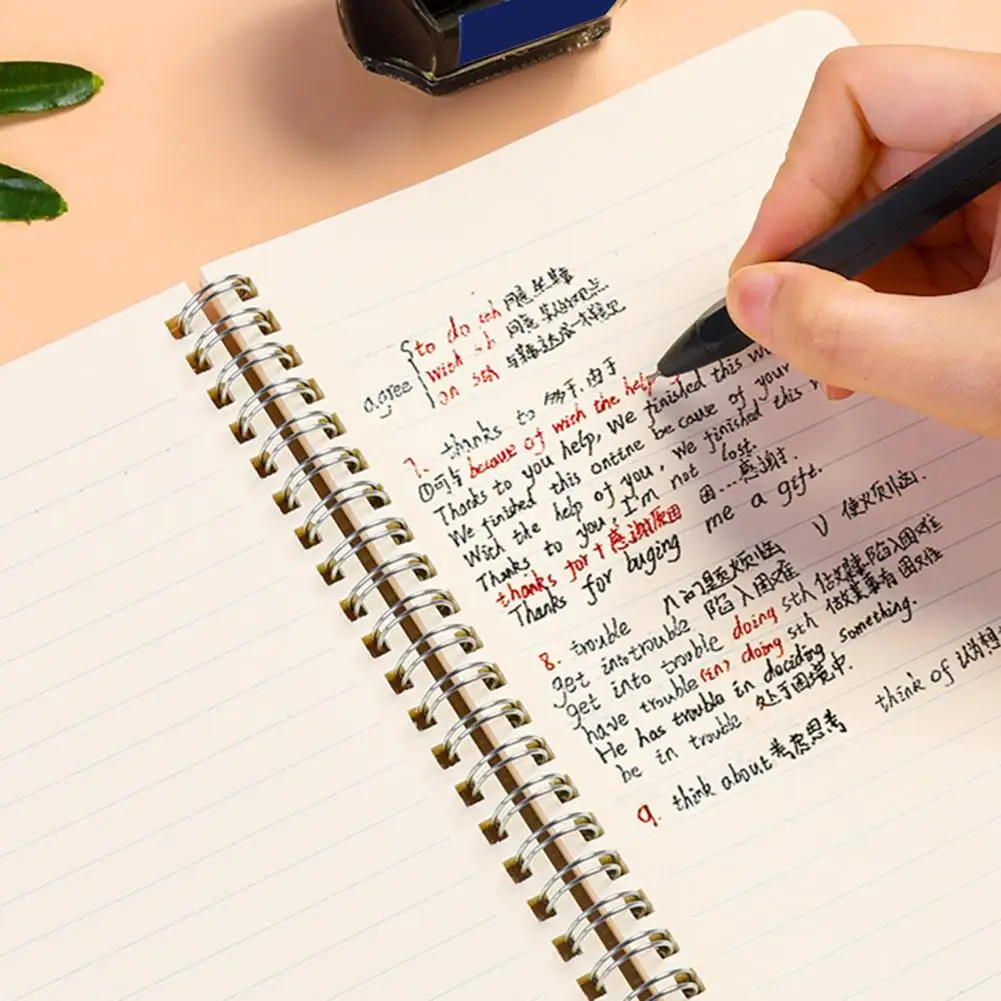 to do sth 同意做某事
agree with sb 同意某人的观点
on sth 与某人达成一致意见
7. thanks to 多亏.由于
①可与 because of with the help
Thanks to you help, We finished this w
We finished this ontine because of your
With the help of you, We finished this
Thanks to you, I'm not lost.
thanks for + 感谢原因 因...感谢对.
Thanks for buging me a gift.
8. trouble n 问题烦恼 V 使烦恼.
get into trouble 陷入困难
get into trouble doing sth 做某事陷入困难
have trouble (in) doing sth 做某事有困难
He has trouble in deciding something.
be in trouble 处于困境中.
9. think about 考虑思考 think of 认为想